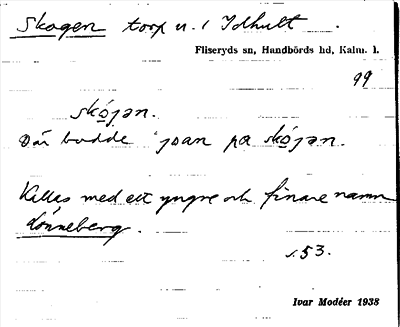 Skogen torp u. / Idhult.
Fliseryds sn, Handbörds hd, Kalm. l.
99
skọ́jən.
Där bodde 'joan pa skọjən.
Kallas med ett yngre och finare namn
Lönneberg.
s. 53.
Ivar Modéer 1938